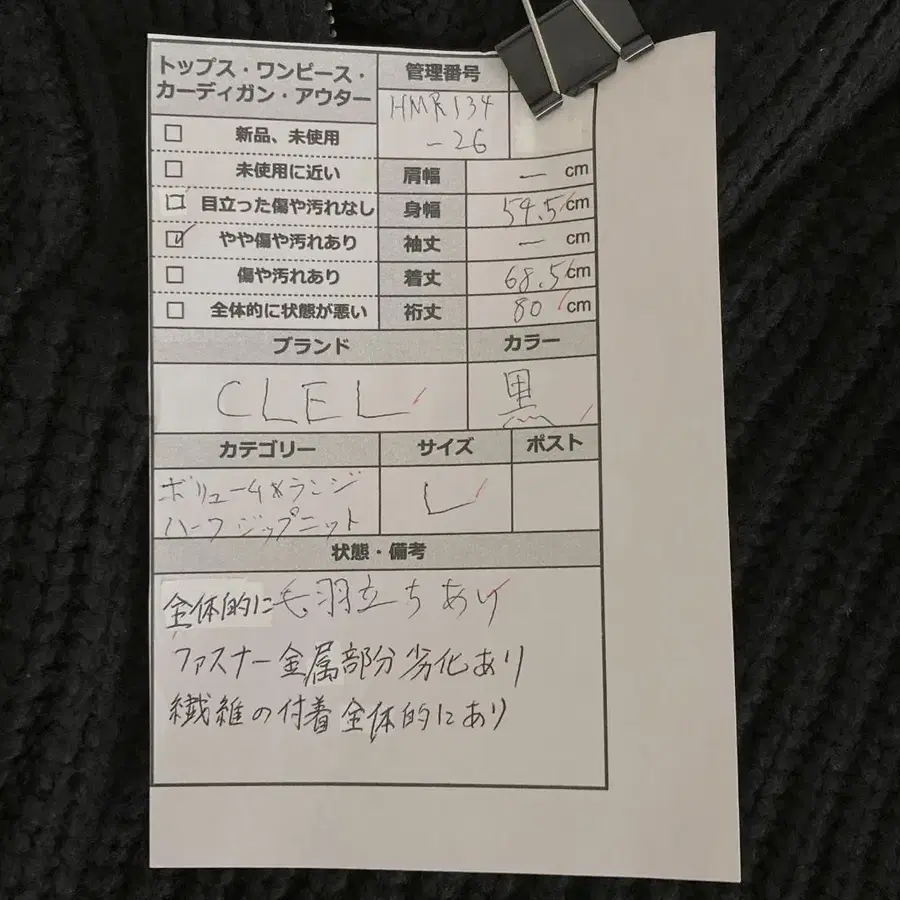 トップス・ワンピース・
カーディガン・アウター
管理番号
HMR134
-26
□ 新品、未使用
□ 未使用に近い
□ 目立った傷や汚れなし
☑ やや傷や汚れあり
□ 傷や汚れあり
□ 全体的に状態が悪い
肩幅 — cm
身幅 54.5 cm
袖丈 — cm
着丈 68.5 cm
裄丈 80 cm
ブランド カラー
CLEL 黒
カテゴリー サイズ ポスト
ボリュームメランジ
ハーフジップニット
L
状態・備考
全体的に毛羽立ちあり
ファスナー金属部分劣化あり
繊維の付着全体的にあり